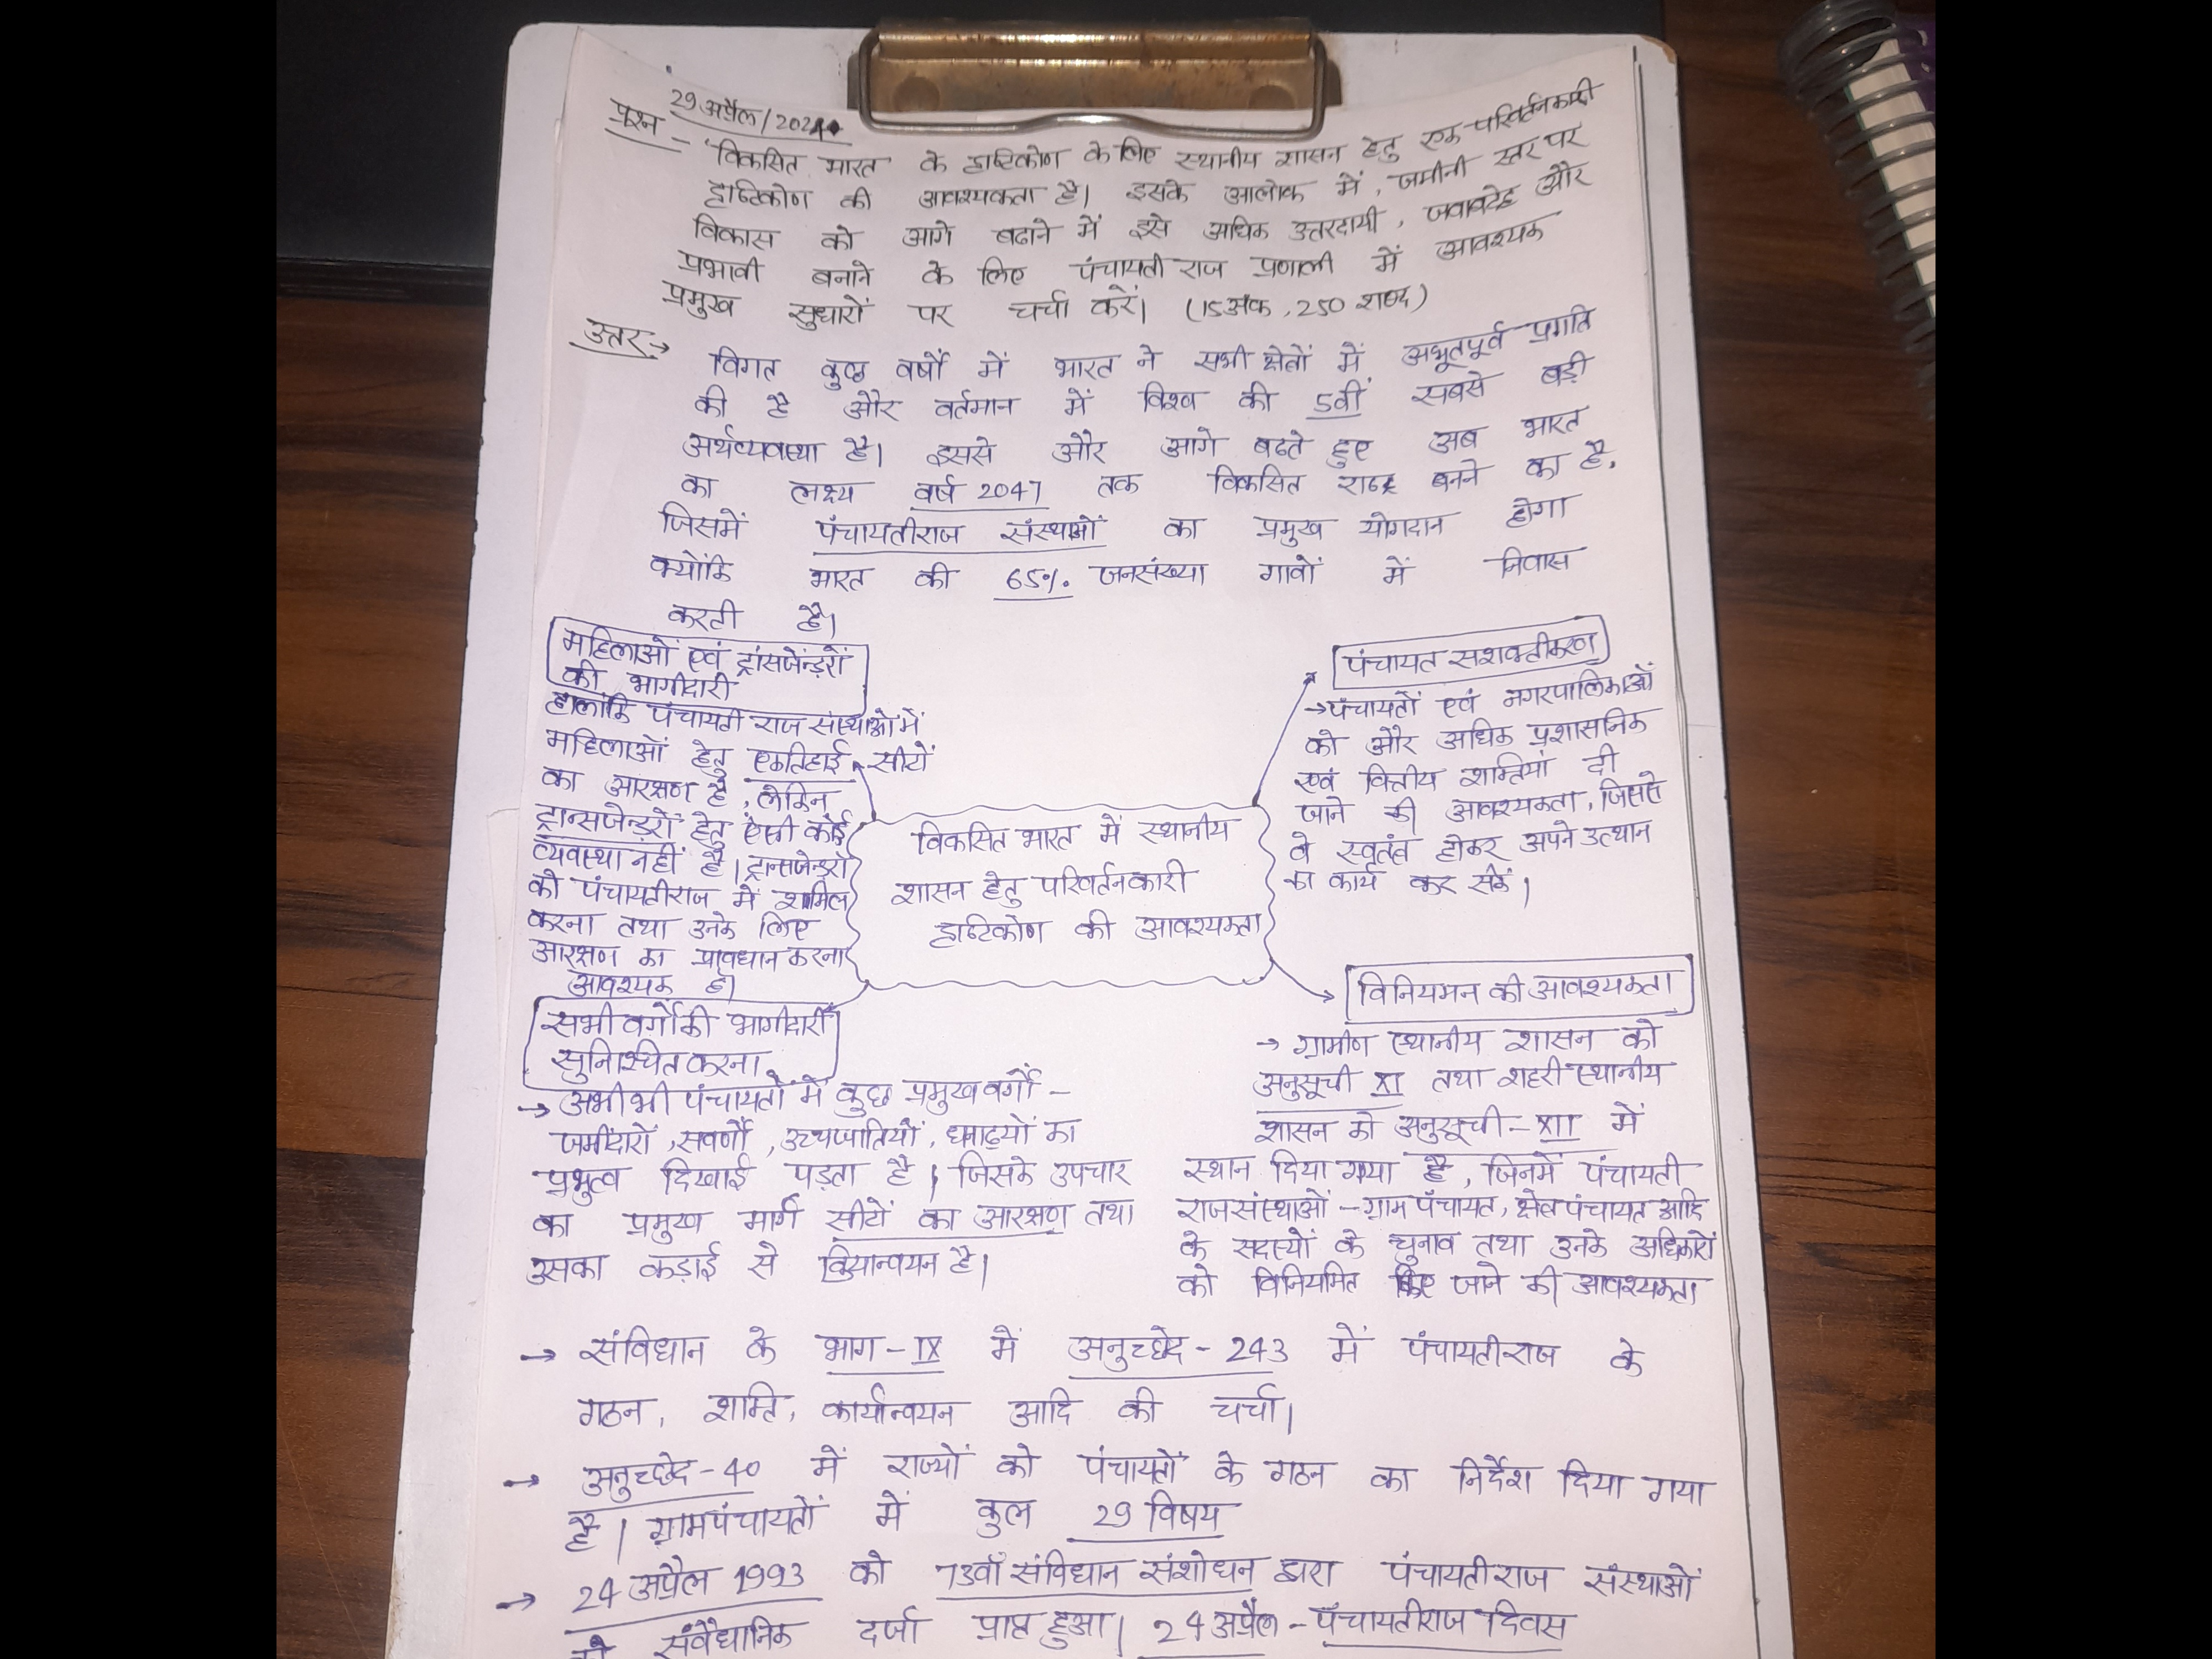 29 अप्रैल/2024
प्रश्न - 'विकसित भारत' के दृष्टिकोण के लिए स्थानीय शासन हेतु एक परिवर्तनकारी
दृष्टिकोण की आवश्यकता है। इसके आलोक में, जमीनी स्तर पर
विकास को आगे बढाने में इसे अधिक उत्तरदायी, जवाबदेह और
प्रभावी बनाने के लिए पंचायती राज प्रणाली में आवश्यक
प्रमुख सुधारों पर चर्चा करें। (15अंक, 250 शब्द)
उत्तर→
विगत कुछ वर्षों में भारत ने सभी क्षेत्रों में अभूतपूर्व प्रगति
की है और वर्तमान में विश्व की 5वीं सबसे बड़ी
अर्थव्यवस्था है। इससे और आगे बढते हुए अब भारत
का लक्ष्य वर्ष 2047 तक विकसित राष्ट्र बनने का है,
जिसमें पंचायतीराज संस्थाओं का प्रमुख योगदान होगा
क्योंकि भारत की 65% जनसंख्या गावों में निवास
करती है।
महिलाओं एवं ट्रांसजेंन्ड़रों
की भागीदारी
हालांकि पंचायती राज संस्थाओ में
महिलाओं हेतु एकतिहाई सीटों
का आरक्षण है, लेकिन
ट्रान्सजेन्ड़रों हेतु ऐसी कोई
व्यवस्था नहीं है। ट्रान्सजेन्ड़रों
को पंचायतीराज में शामिल
करना तथा उनके लिए
आरक्षण का प्रावधान करना
आवश्यक है।
विकसित भारत में स्थानीय
शासन हेतु परिवर्तनकारी
दृष्टिकोण की आवश्यकता
पंचायत सशक्तीकरण
→पंचायतों एवं नगरपालिकाओं
को और अधिक प्रशासनिक
एवं वित्तीय शक्तियां दी
जाने की आवश्यकता, जिससे
वे स्वतंत्र होकर अपने उत्थान
का कार्य कर सकें।
सभी वर्गो की भागीदारी
सुनिश्चित करना
→ अभी भी पंचायतों में कुछ प्रमुख वर्गो -
जमींदारों, सवर्णों, उच्चजातियों, धनाढ्यों का
प्रभुत्व दिखाई पड़ता है। जिसके उपचार
का प्रमुख मार्ग सीटों का आरक्षण तथा
उसका कड़ाई से क्रियान्वयन है।
विनियमन की आवश्यकता
→ ग्रामीण स्थानीय शासन को
अनुसूची XI तथा शहरी स्थानीय
शासन को अनुसूची-XII में
स्थान दिया गया है, जिनमें पंचायती
राज संस्थाओं - ग्राम पंचायत, क्षेत्र पंचायत आदि
के सदस्यों के चुनाव तथा उनके अधिकारों
को विनियमित किए जाने की आवश्यकता
→ संविधान के भाग-IX में अनुच्छेद-243 में पंचायतीराज के
गठन, शक्ति, कार्यान्वयन आदि की चर्चा।
→ अनुच्छेद-40 में राज्यों को पंचायतों के गठन का निर्देश दिया गया
है। ग्रामपंचायतों में कुल 29 विषय
→ 24 अप्रैल 1993 को 73वाँ संविधान संशोधन द्वारा पंचायतीराज संस्थाओं
को संवैधानिक दर्जा प्राप्त हुआ। 24 अप्रैल - पंचायतीराज दिवस